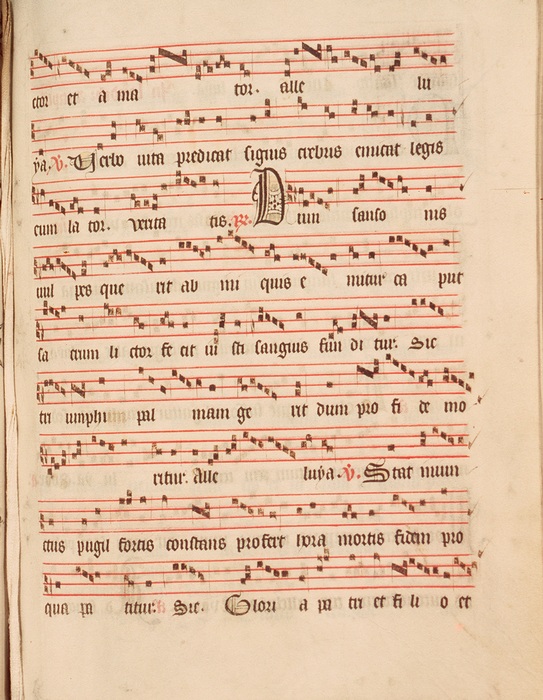 ctor et a ma tor. alle lu
ya. V. Verbo uita predicat signis crebris emicat legis
cum la tor. uerita tis. R. Dum sanso nis
uul pes que rit ab ini quis e mittur ca put
sa crum li ctor fe cit iu sti sanguis fun di tur. Sic
tri umphum pal mam ge rit dum pro fi de mo
ritur. Alle luya. V. Stat inuin
ctus pugil fortis constans profert hora mortis fidem pro
qua pa titur. Sic. Glori a pa tri et fi li o et